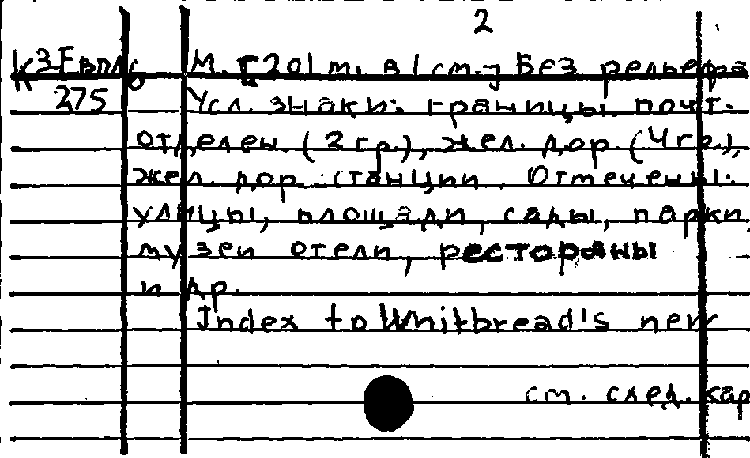 2
К3-Евпл6 М. [201 m. в 1 см.-] Без рельефа
275 Усл. знаки: границы почт.
отделен. (2 гр.), жел. дор. (4 гр.),
жел. дор. станции. Отмечены:
улицы, площади, сады, парки,
музеи отели, рестораны
и др.
Index to Whitbread's new
см. след. кар